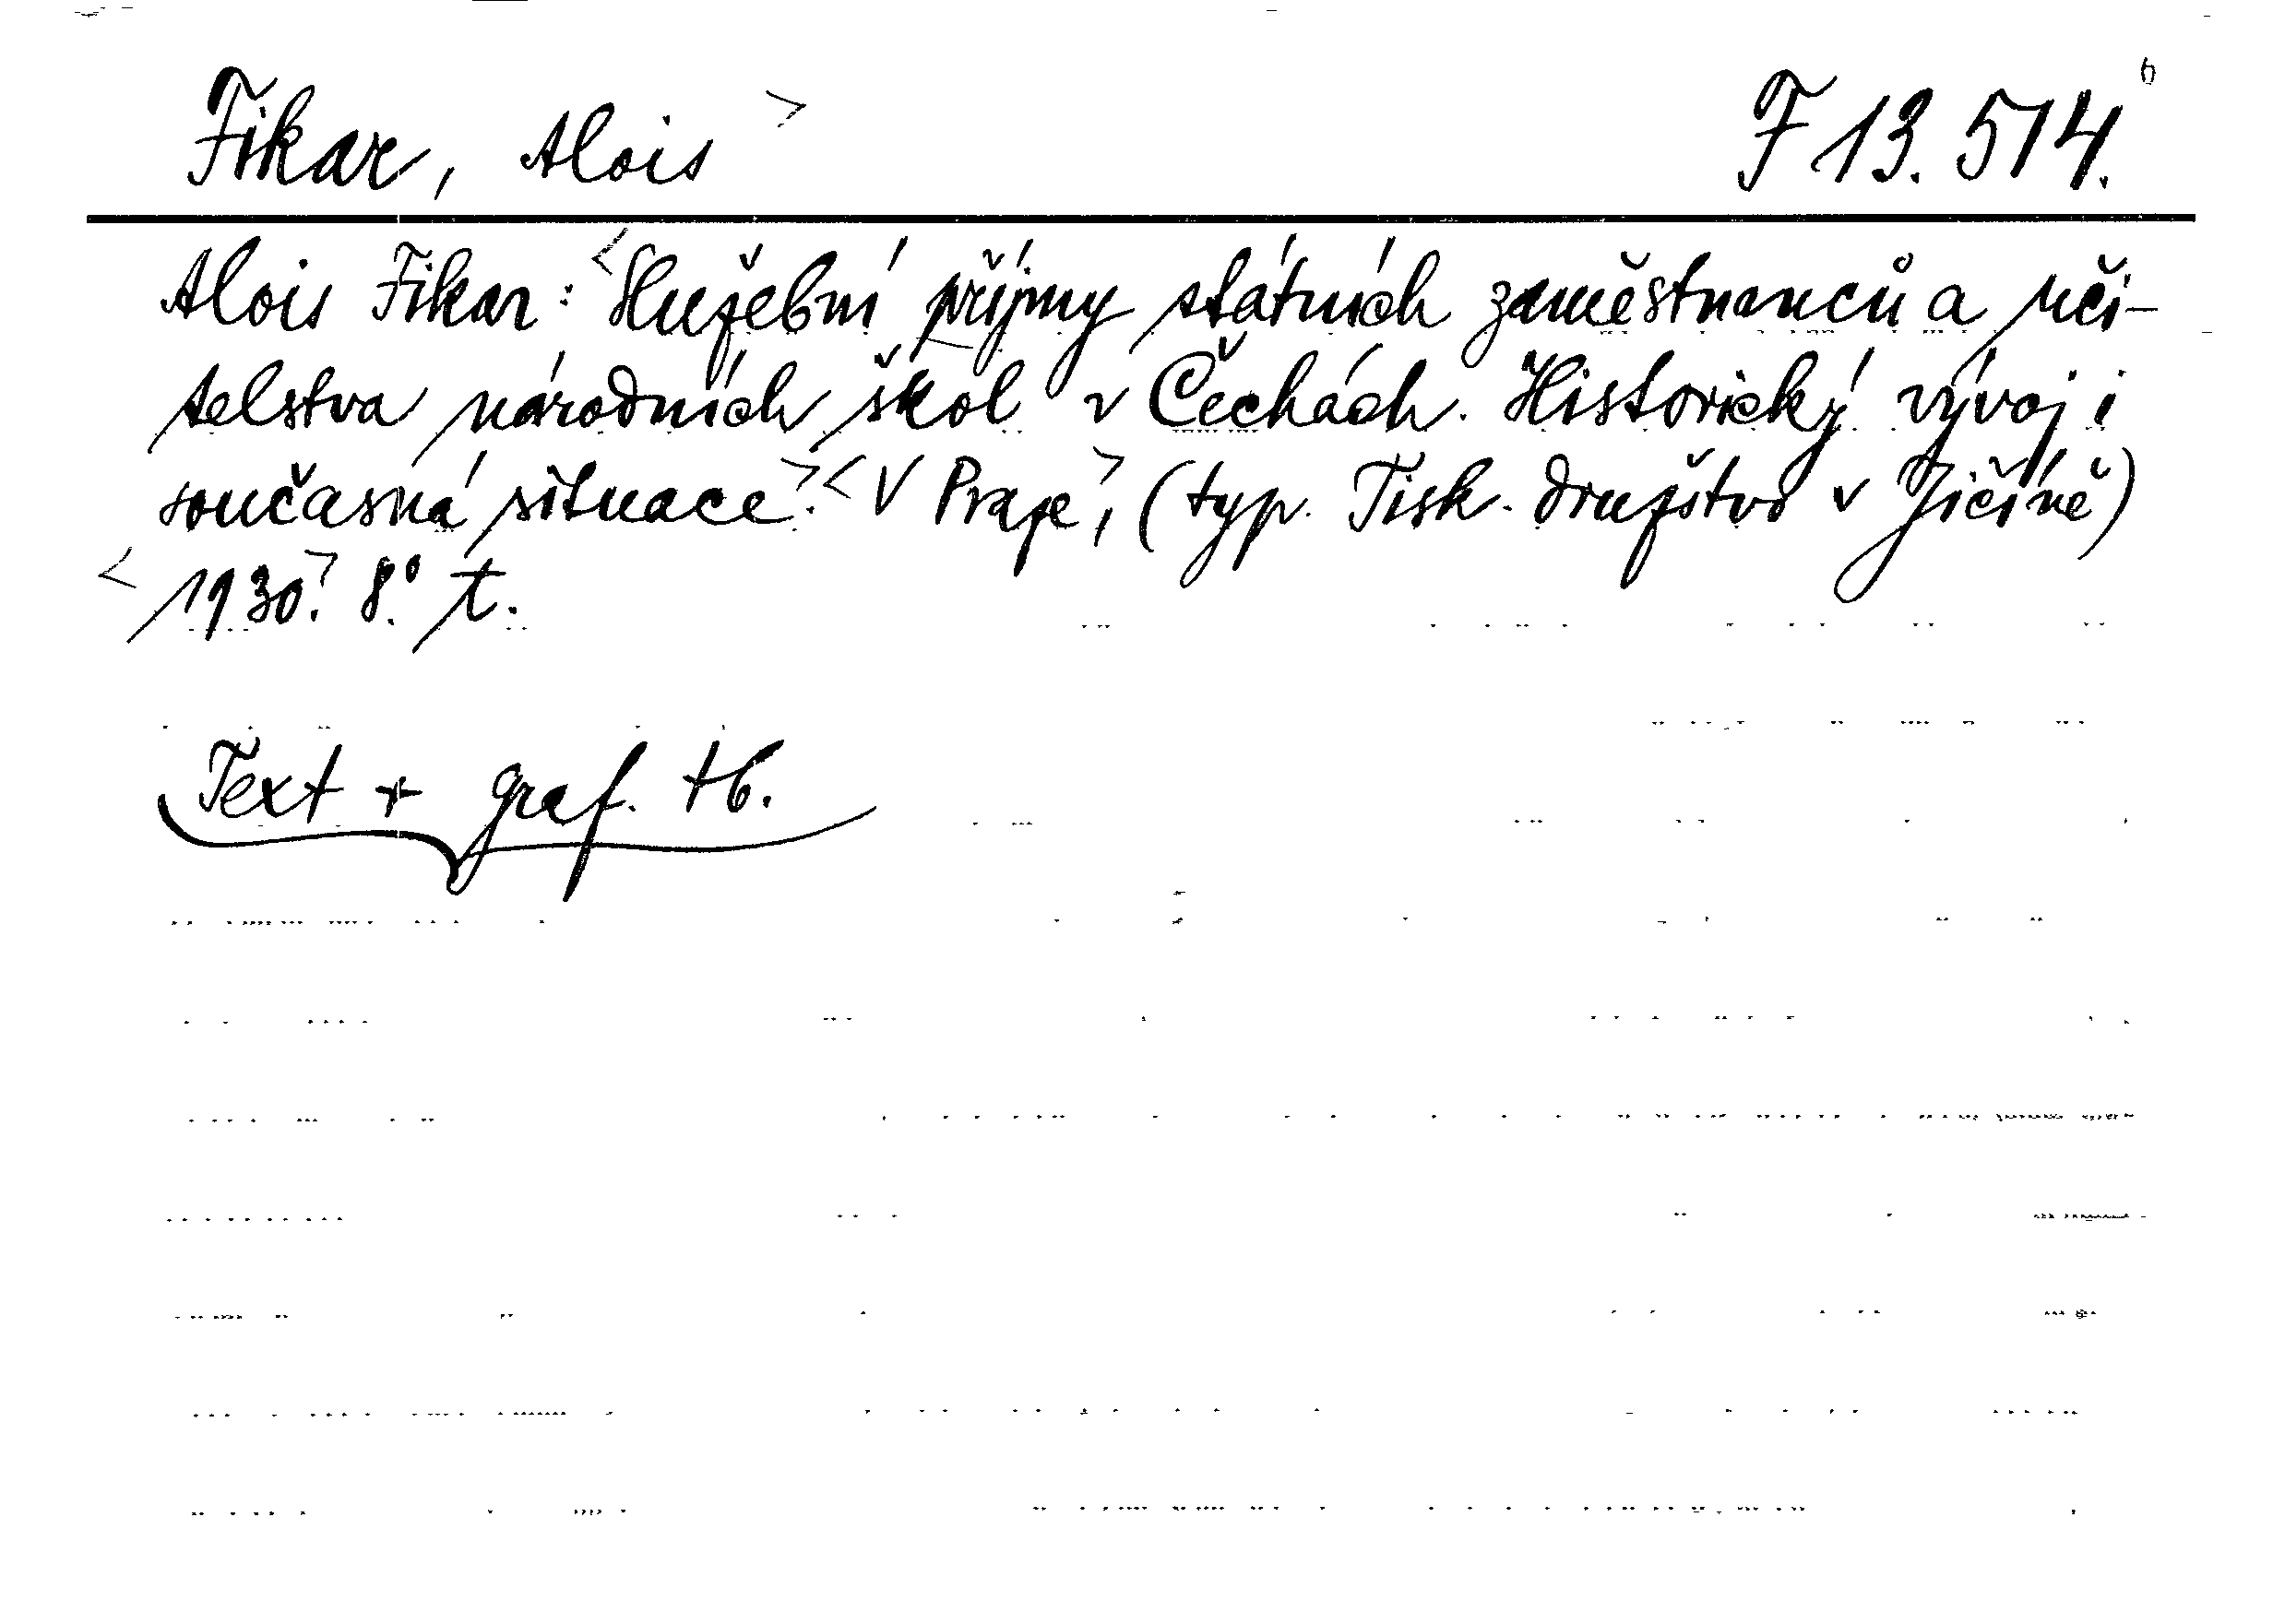 Fikar, Alois > F 13.514. 6
Alois Fikar: <Služební příjmy státních zaměstnanců a uči-
telstva národních škol v Čechách. Historický vývoj i
současná situace>. <V Praze>, (typ. Tisk. družstvo v Jičíně)
<1930>. 8.° t.
Text + graf. tb.